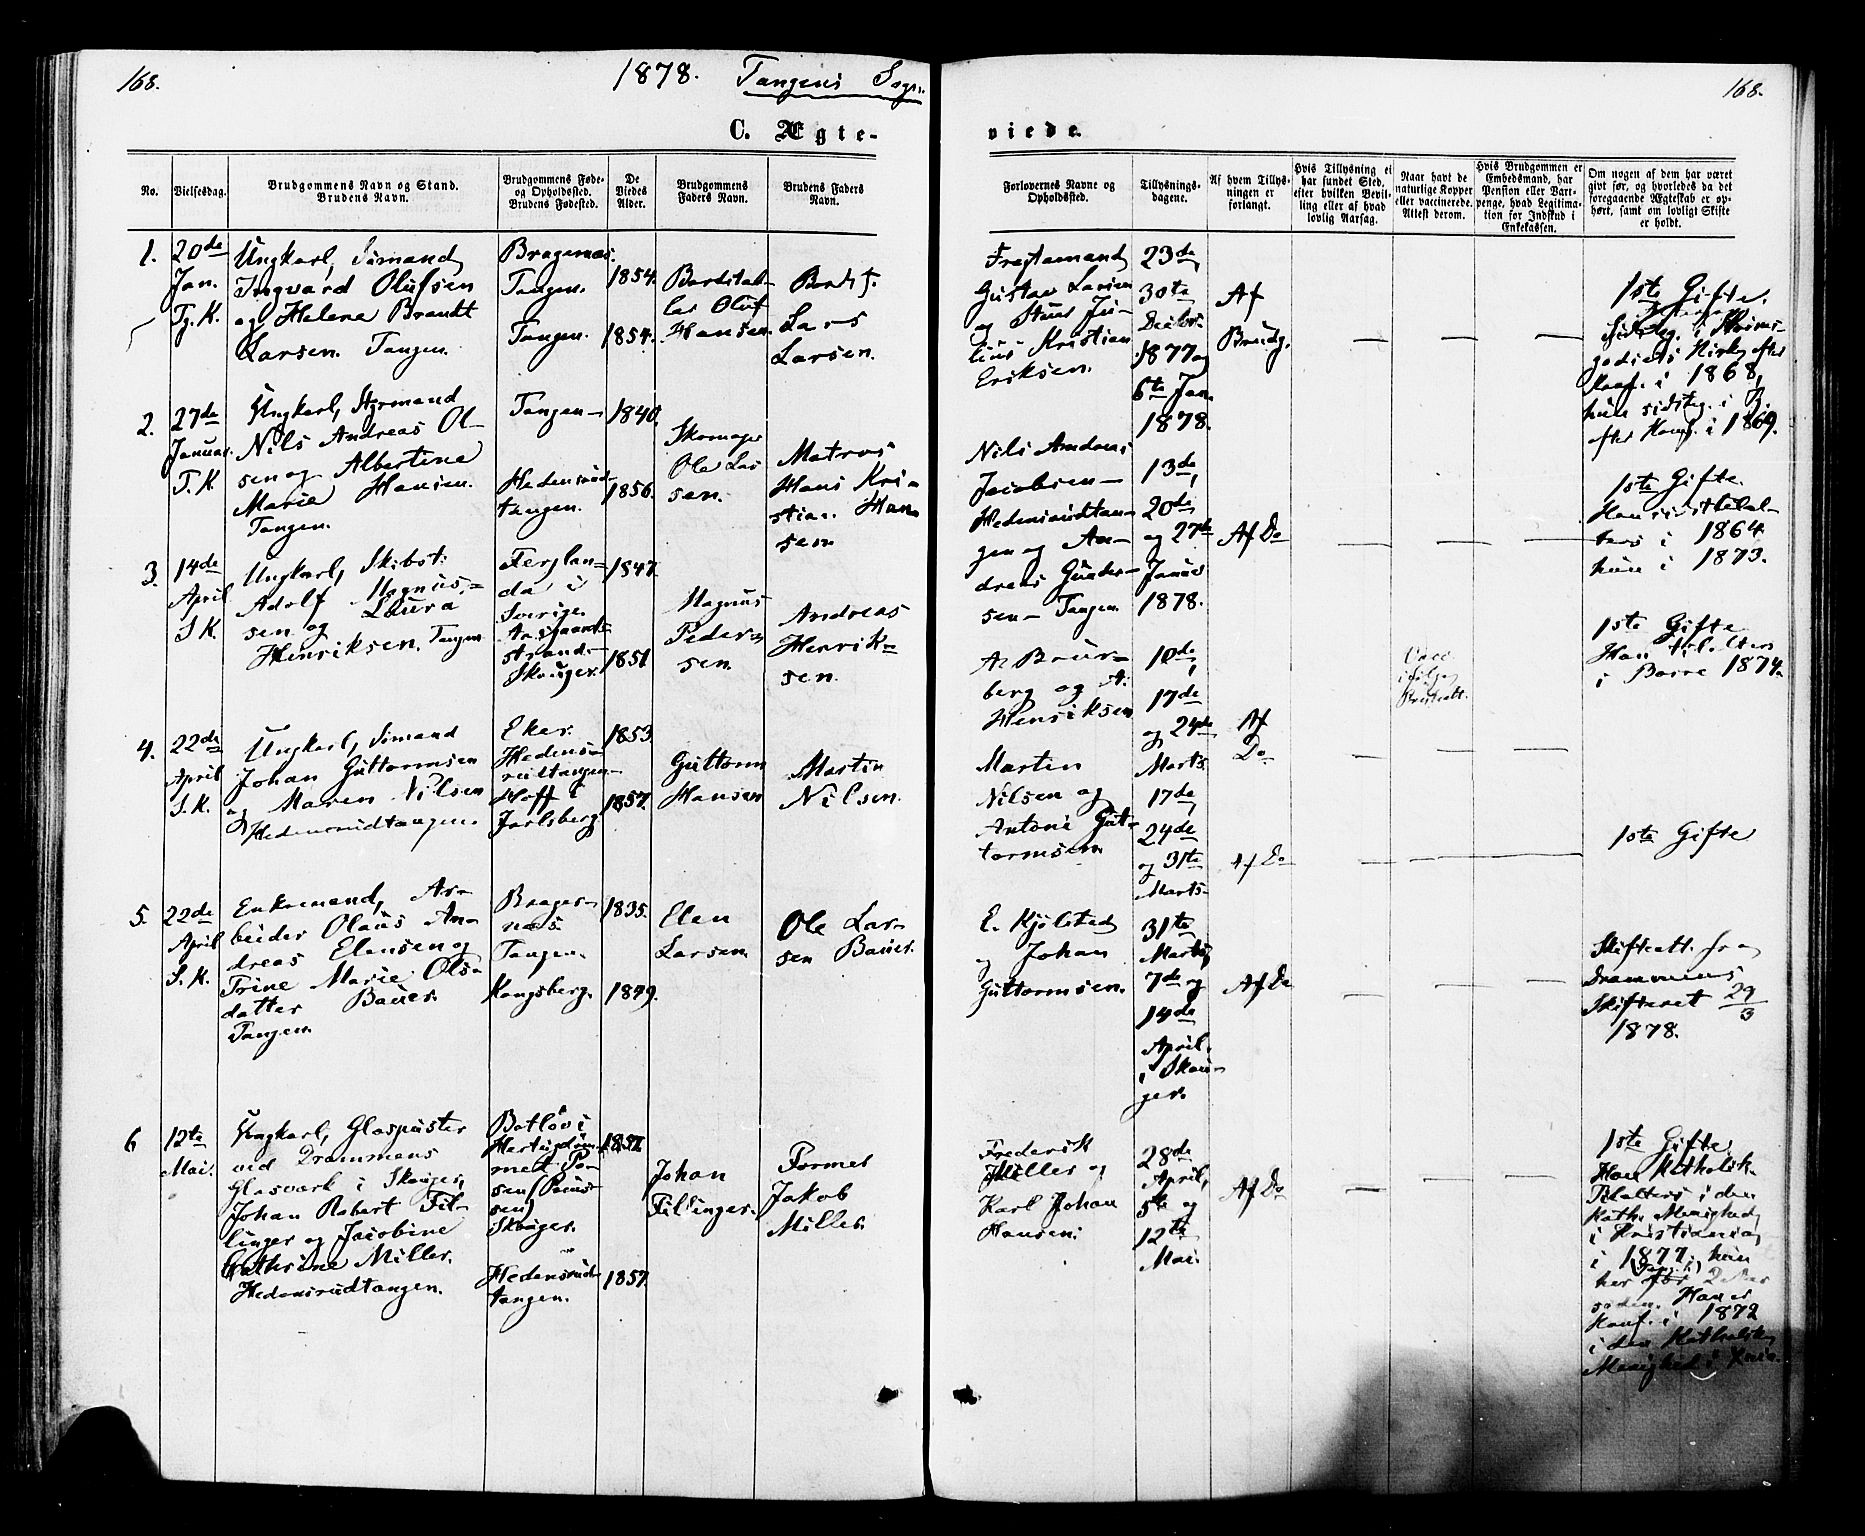 168.
1878. Tangens Sogn.
168.
C. Ægte-
viede.
No.
Vielsesdag.
Brudgommens Navn og Stand.
Brudens Navn.
Brudgommens Føde-
og Opholdssted.
Brudens Fødested.
De
Viedes
Alder.
Brudgommens
Faders Navn.
Brudens Faders
Navn.
Forlovernes Navne og
Opholdssted.
Tillysnings-
dagene.
Af hvem Tillys-
ningen er
forlangt.
Hvis Tillysning ei
har fundet Sted,
efter hvilken Bevil-
ling eller af hvad
lovlig Aarsag.
Naar havt de
naturlige Kopper
eller vaccinerede.
Attest derom.
Hvis Brudgommen er
Embedsmand, har
Pension eller Vart-
penge, hvad Legitima-
tion for Indskud i
Enkekassen.
Om nogen af dem har været
gift før, og hvorledes da det
foregaaende Ægteskab er op-
hørt, samt om lovligt Skifte
er holdt.
1.
20de
Jan.
Tg. K.
Ungkarl, Sømand
Ingvard Olufsen
og Helene Brandt
Larsen. Tangen.
Bragernæs.
Tangen.
Tangen.
1854.
1854.
Oluf
Hansen.
Lars
Larsen.
Gustav Larsen
og Stuer Ju-
lius Kristian
Eriksen.
23de,
30te
Decbr.
1877 og
6te Jan.
1878.
Af
Brudg.
1ste Gifte.
Kirke efter
Konf. i 1868,
hun sidsteg. i T.
efter Konf. i 1869.
2.
27de
Januar.
T. K.
Ungkarl, Styrmand
Nils Andreas Ol-
sen og Albertine
Marie Hansen.
Tangen.
Tangen
Hedensrud-
tangen.
1840.
1856.
Skomager
Ole Lar
sen.
Matros
Hans Kri-
stian Han
sen
Nils Andreas
Jacobsen
Hedensrudtan-
gen og An-
dreas Gunder-
sen - Tangen
13de,
20de
og 27de
Januar
1878.
Af Do
1ste Gifte.
Han sidst til al-
ters i 1864
hun i 1873.
3.
14de
April
S K.
Ungkarl, Skibst.
Adolf Magnus-
sen og Laura
Henriksen. Tangen
Ferglan-
da i
Sverige.
Aasgaard-
strand-
Skouger.
1847.
1851
Magnus
Peder
sen
Andreas
Henrik-
sen.
A. Baur-
berg og A.
Henriksen
10de,
17de
og 24de
Marts.
Af
Do
1ste Gifte
Han til alters
i Borre 1874.
4.
22de
April
S. K.
Ungkarl, Sømand
Johan Guttormsen
og Maren Nilsen
Hedensrudtangen.
Eker.
Hedens-
rudtangen
Hoff i
Jarlsberg
1853.
1857.
Guttorm
Hansen
Martin
Nilsen.
Martin
Nilsen og
Antoni Gut-
tormsen
17de,
24de
og 31te
Marts
Af Do
1ste Gifte
5.
22de
April
S. K.
Enkemand, Ar-
beider Olaus An-
dreas Elensen og
Trine Marie Ols-
datter Bauer.
Tangen
Brager-
næs.
Tangen.
Kongsberg.
1835.
1849.
Elen
Larsen
Ole Lar-
sen Bauer.
E. Kjølstad
og Johan
Guttormsen.
31te
Marts,
7de og
14de
April.
i Skou-
ger.
Af Do
Skifteatt. fra
Drammens
Skifteret 29/3
1878.
6
12te
Mai.
Ungkarl, Glaspuster
ved Drammens
Glasværk i Skouger,
Johan Robert Fil-
linger og Jacobine
Cathrine Miller.
Hedensrudtangen.
Skouger.
Hedensrud
tangen.
1857.
Johan
Fillinger.
Former
Jakob
Miller.
Frederik
Miller og
Karl Johan
Hansen.
28de
April,
5te og
12te
Mai.
Af Do
1ste Gifte.
Han katholsk.
Til alters i den
Kath. Menighed
i Kristiania
i 1877; hun
her før 2 Aar
siden. Han er
Konf. i 1872
i den Katholske
Menighed i Xnia.